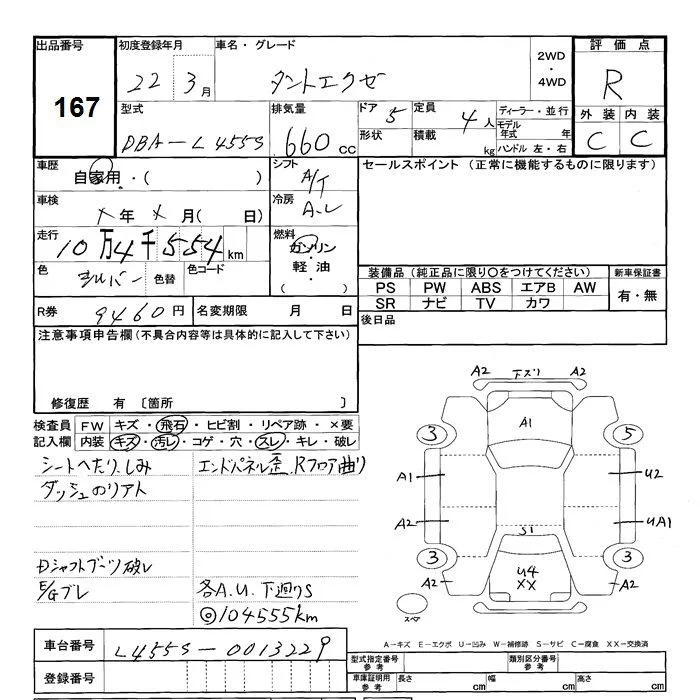 出品番号 初度登録年月 車名・グレード 評価点
167 22 3月 タントエクゼ 2WD・4WD R
型式 排気量 ドア 5 定員 4人 ディーラー・並行 外装 内装
DBA-L455S 660cc 形状 積載 kg モデル年式 年 ハンドル 左・右 C C
車歴 シフト セールスポイント (正常に機能するものに限ります)
自家用・( ) A/T
車検 冷房
×年×月( 日) A.C
走行 燃料
10万4千554km ガソリン・軽油・( )
色 シルバー 色替 色コード 装備品 (純正品に限り○をつけてください) 新車保証書
PS PW ABS エアB AW 有・無
SR ナビ TV カワ
R券 9460円 名変期限 月 日 後日品
注意事項申告欄(不具合内容等は具体的に記入して下さい)
修復歴 有 〔箇所 〕
検査員 FW キズ・飛石・ヒビ割・リペア跡・×要
記入欄 内装 キズ・汚レ・コゲ・穴・スレ・キレ・破レ
シートへたり、しみ エンドパネル歪、Rフロア曲り
ダッシュのリアト
Dシャフトブーツ破レ
E/Gブレ 各A.U.下廻りS
◎104555km
A2 下ズリ A2
A1
3 5
A1 U2
A2 UA1
S1
3 3
A2 U4 A2
XX
スペア
車台番号 L455S-0013229
A-キズ E-エクボ U-凹み W-補修跡 S-サビ C-腐食 XX-交換済
登録番号 型式指定番号 参考 類別区分番号 参考
車庫証明用 参考 長さ cm 幅 cm 高さ cm